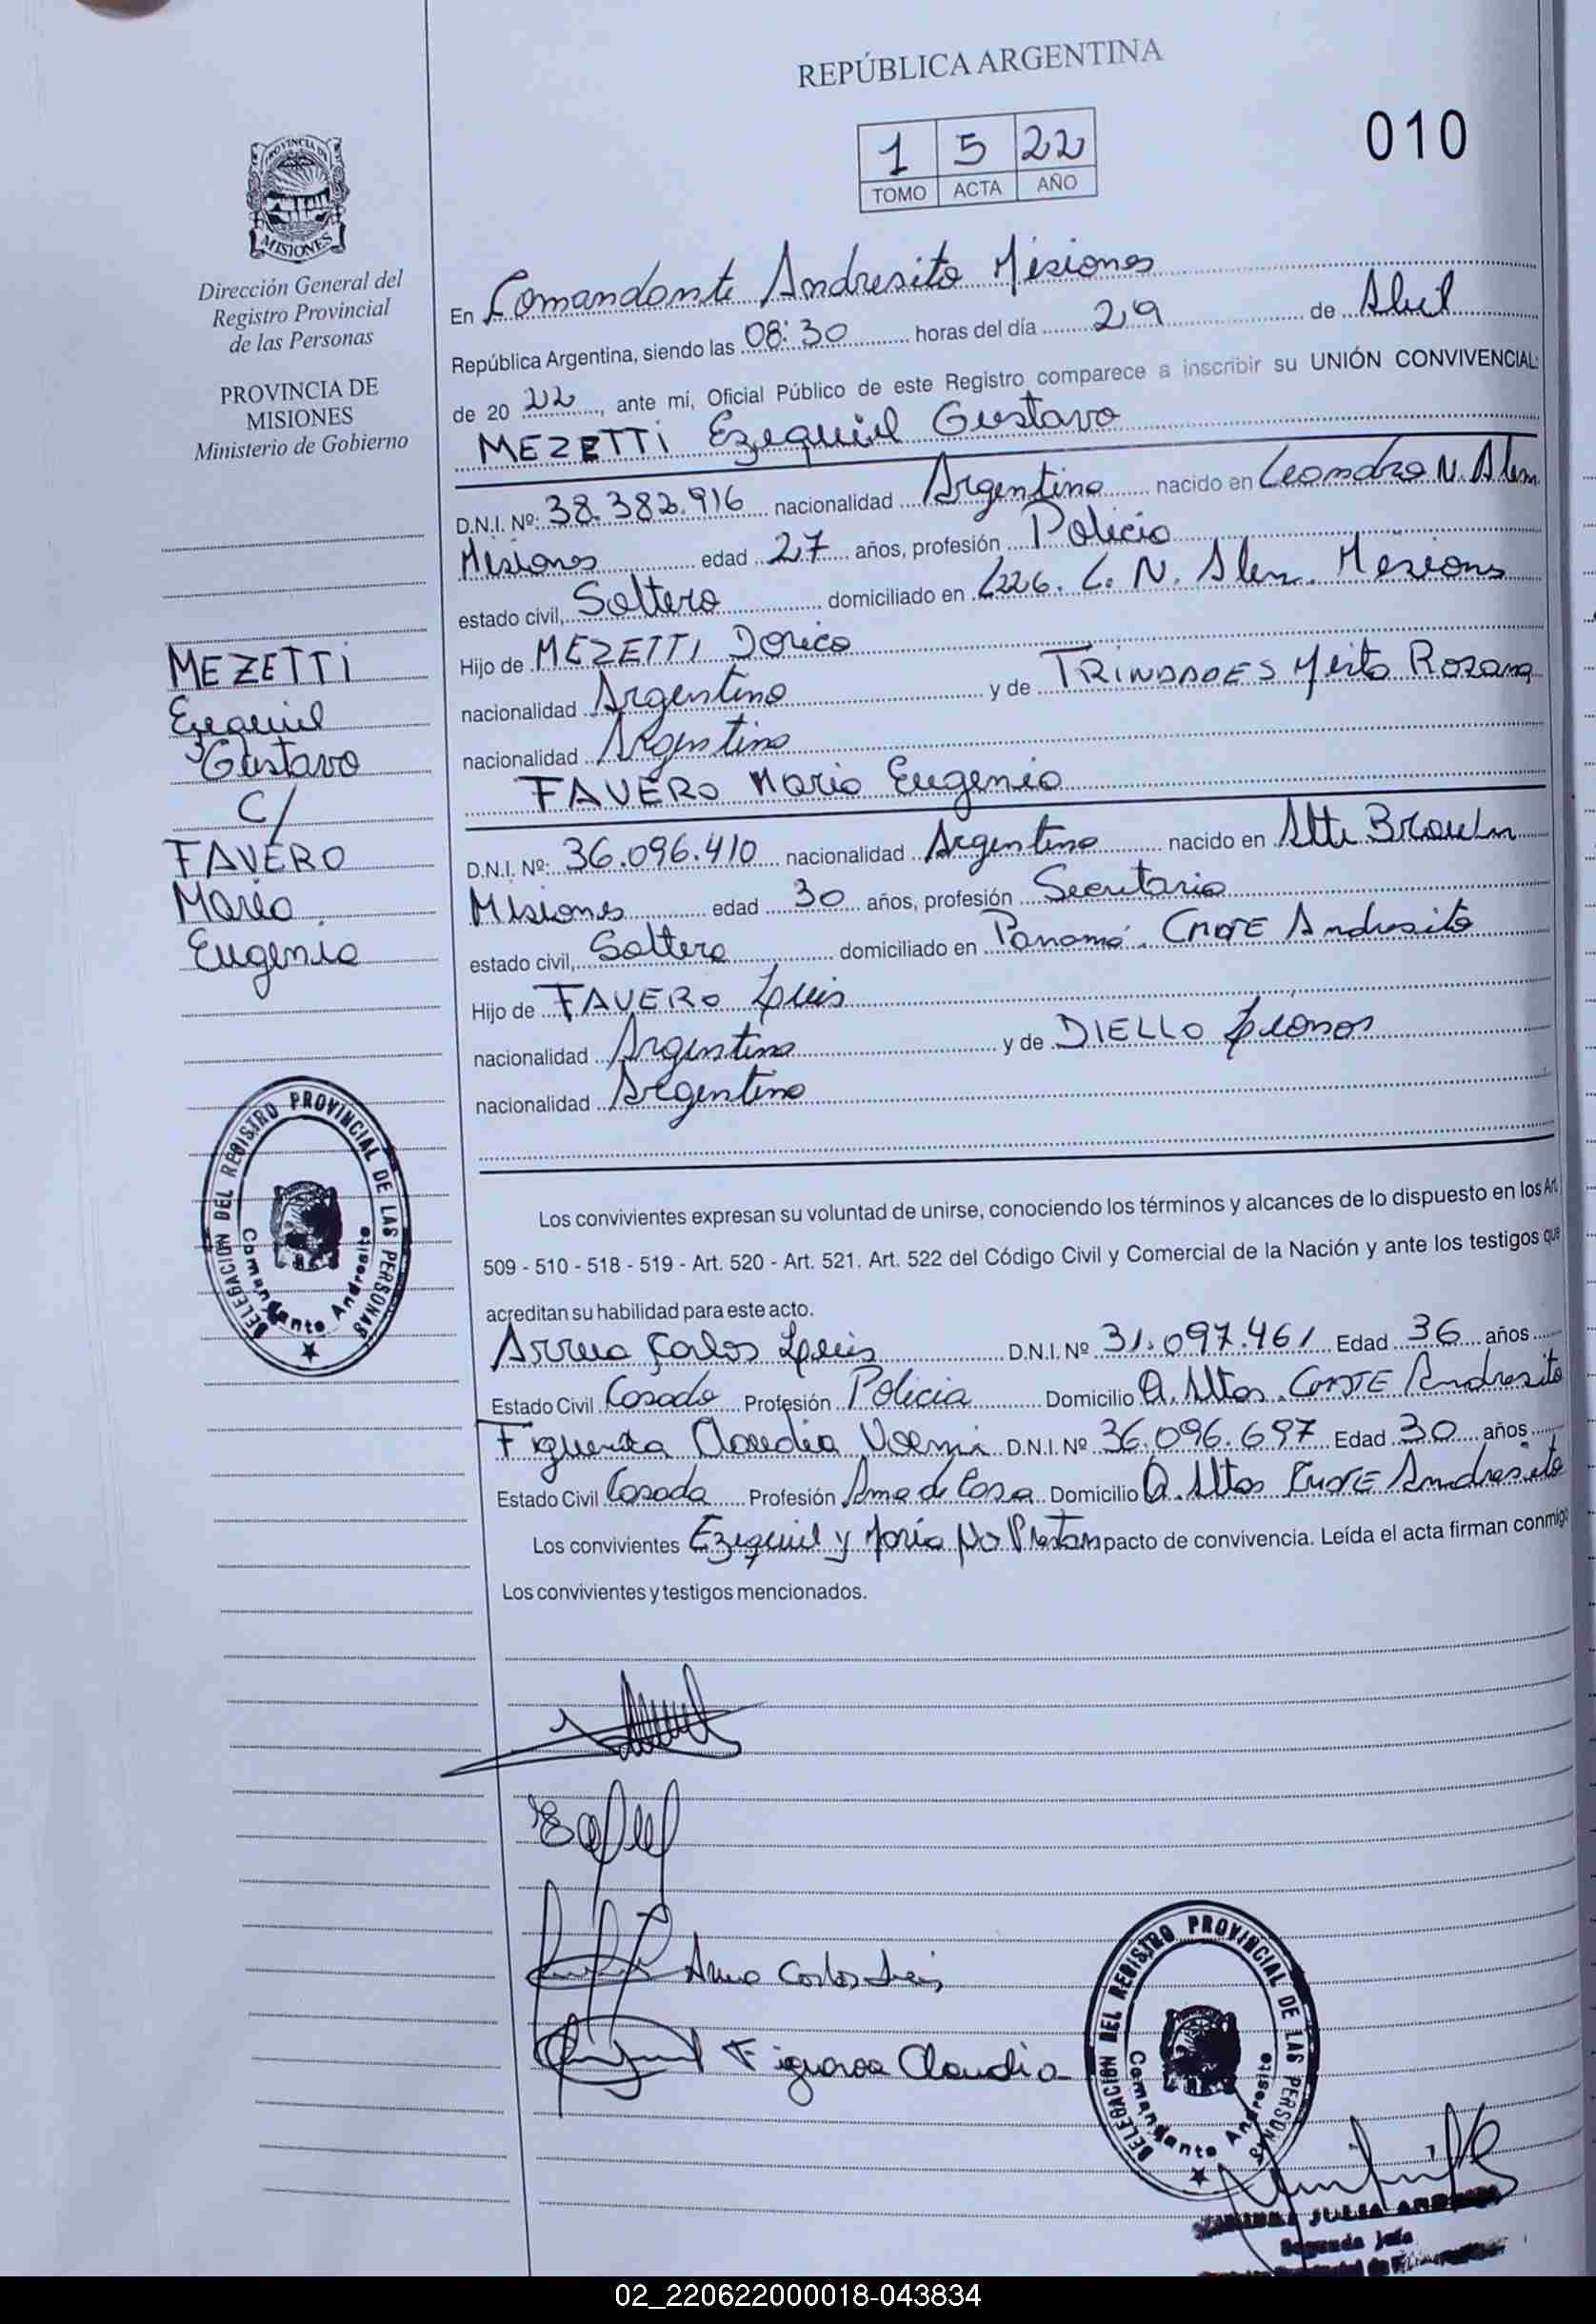 REPÚBLICA ARGENTINA
1 5 22
TOMO ACTA AÑO
010
PROVINCIA DE
MISIONES
Dirección General del
Registro Provincial
de las Personas
PROVINCIA DE
MISIONES
Ministerio de Gobierno
MEZETTI
Ezequiel
Gustavo
C/
FAVERO
Maria
Eugenia
DELEGACION DEL REGISTRO PROVINCIAL DE LAS PERSONAS
Comandante Andresito
En Comandante Andresito Misiones
República Argentina, siendo las 08:30 horas del día 29 de Abril
de 20 22, ante mi, Oficial Público de este Registro comparece a inscribir su UNIÓN CONVIVENCIAL:
MEZETTI Ezequiel Gustavo
D.N.I. Nº: 38.382.916 nacionalidad Argentino nacido en Leandro N. Alem
Misiones edad 27 años, profesión Policia
estado civil, Soltero domiciliado en L. N. Alem. Misiones
Hijo de MEZETTI Dorico
nacionalidad Argentino y de TRINDADES Mirta Rozana
nacionalidad Argentina
FAVERO Maria Eugenia
D.N.I. Nº: 36.096.410 nacionalidad Argentina nacido en Alte Brown
Misiones edad 30 años, profesión Secretaria
estado civil, Soltera domiciliado en Panamá. CMDTE Andresito
Hijo de FAVERO Luis
nacionalidad Argentino y de DIELLO
nacionalidad Argentina
Los convivientes expresan su voluntad de unirse, conociendo los términos y alcances de lo dispuesto en los Art.
509 - 510 - 518 - 519 - Art. 520 - Art. 521. Art. 522 del Código Civil y Comercial de la Nación y ante los testigos que
acreditan su habilidad para este acto.
Arrua Carlos Luis D.N.I. Nº 31.097.461 Edad 36 años
Estado Civil Casado Profesión Policia Domicilio Q. Altos. CMDTE Andresito
Figueroa Claudia Noemi D.N.I. Nº 36.096.697 Edad 30 años
Estado Civil Casada Profesión Ama de Casa Domicilio Q. Altos CMDTE Andresito
Los convivientes Ezequiel y Maria No Prestan pacto de convivencia. Leída el acta firman conmigo
Los convivientes y testigos mencionados.
Arrua Carlos Luis
Figueroa Claudia
DELEGACION DEL REGISTRO PROVINCIAL DE LAS PERSONAS
Comandante Andresito
JULIA
Segunda Jefa
02_220622000018-043834